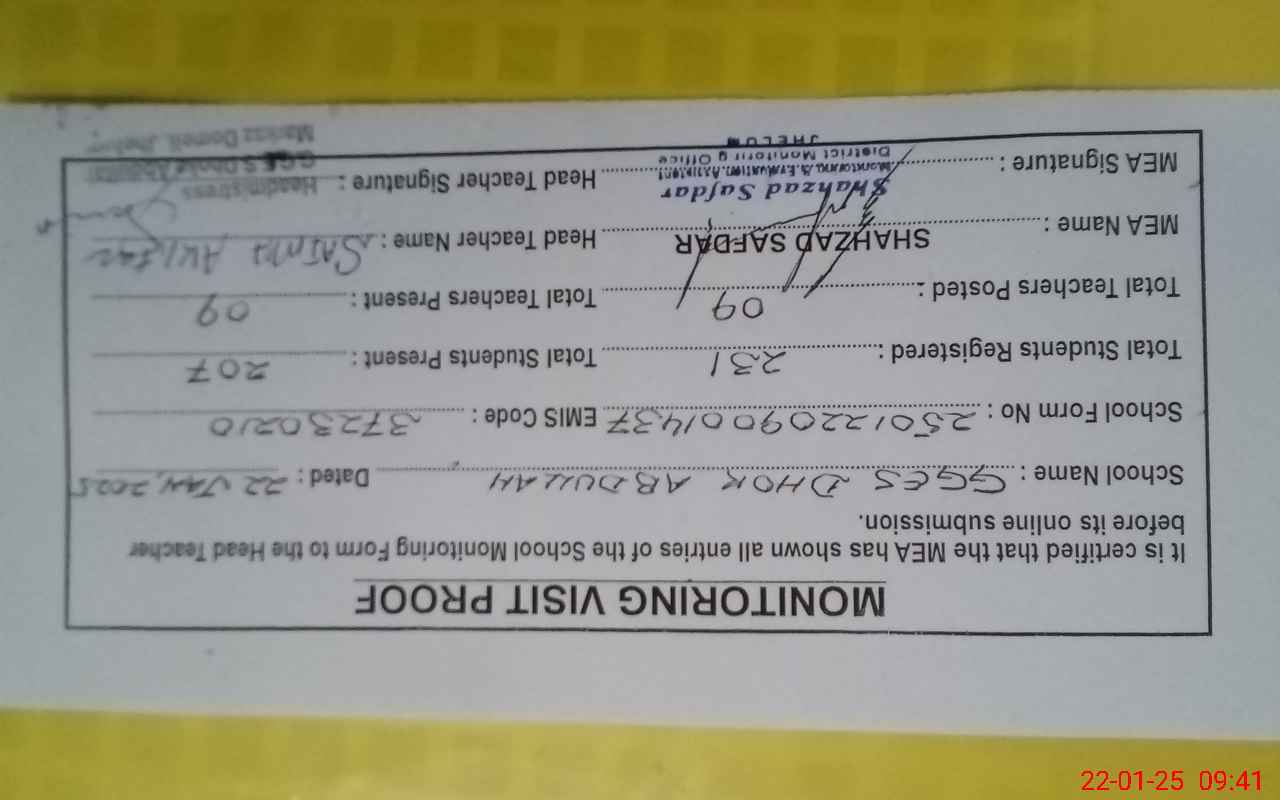 MONITORING VISIT PROOF
It is certified that the MEA has shown all entries of the School Monitoring Form to the Head Teacher
before its online submission.
School Name : GGES DHOK ABDULLAH Dated : 22 JAN, 2025
School Form No : 25012209001437 EMIS Code : 37230210
Total Students Registered : 231 Total Students Present : 207
Total Teachers Posted : 09 Total Teachers Present : 09
MEA Name : SHAHZAD SAFDAR Head Teacher Name : SAIMA AKHTAR
MEA Signature : Head Teacher Signature :
Shahzad Safdar
Monitoring & Evaluation Assistant
District Monitoring Office
JHELUM
Headmistress
Domeli, Jhelum
22-01-25 09:41